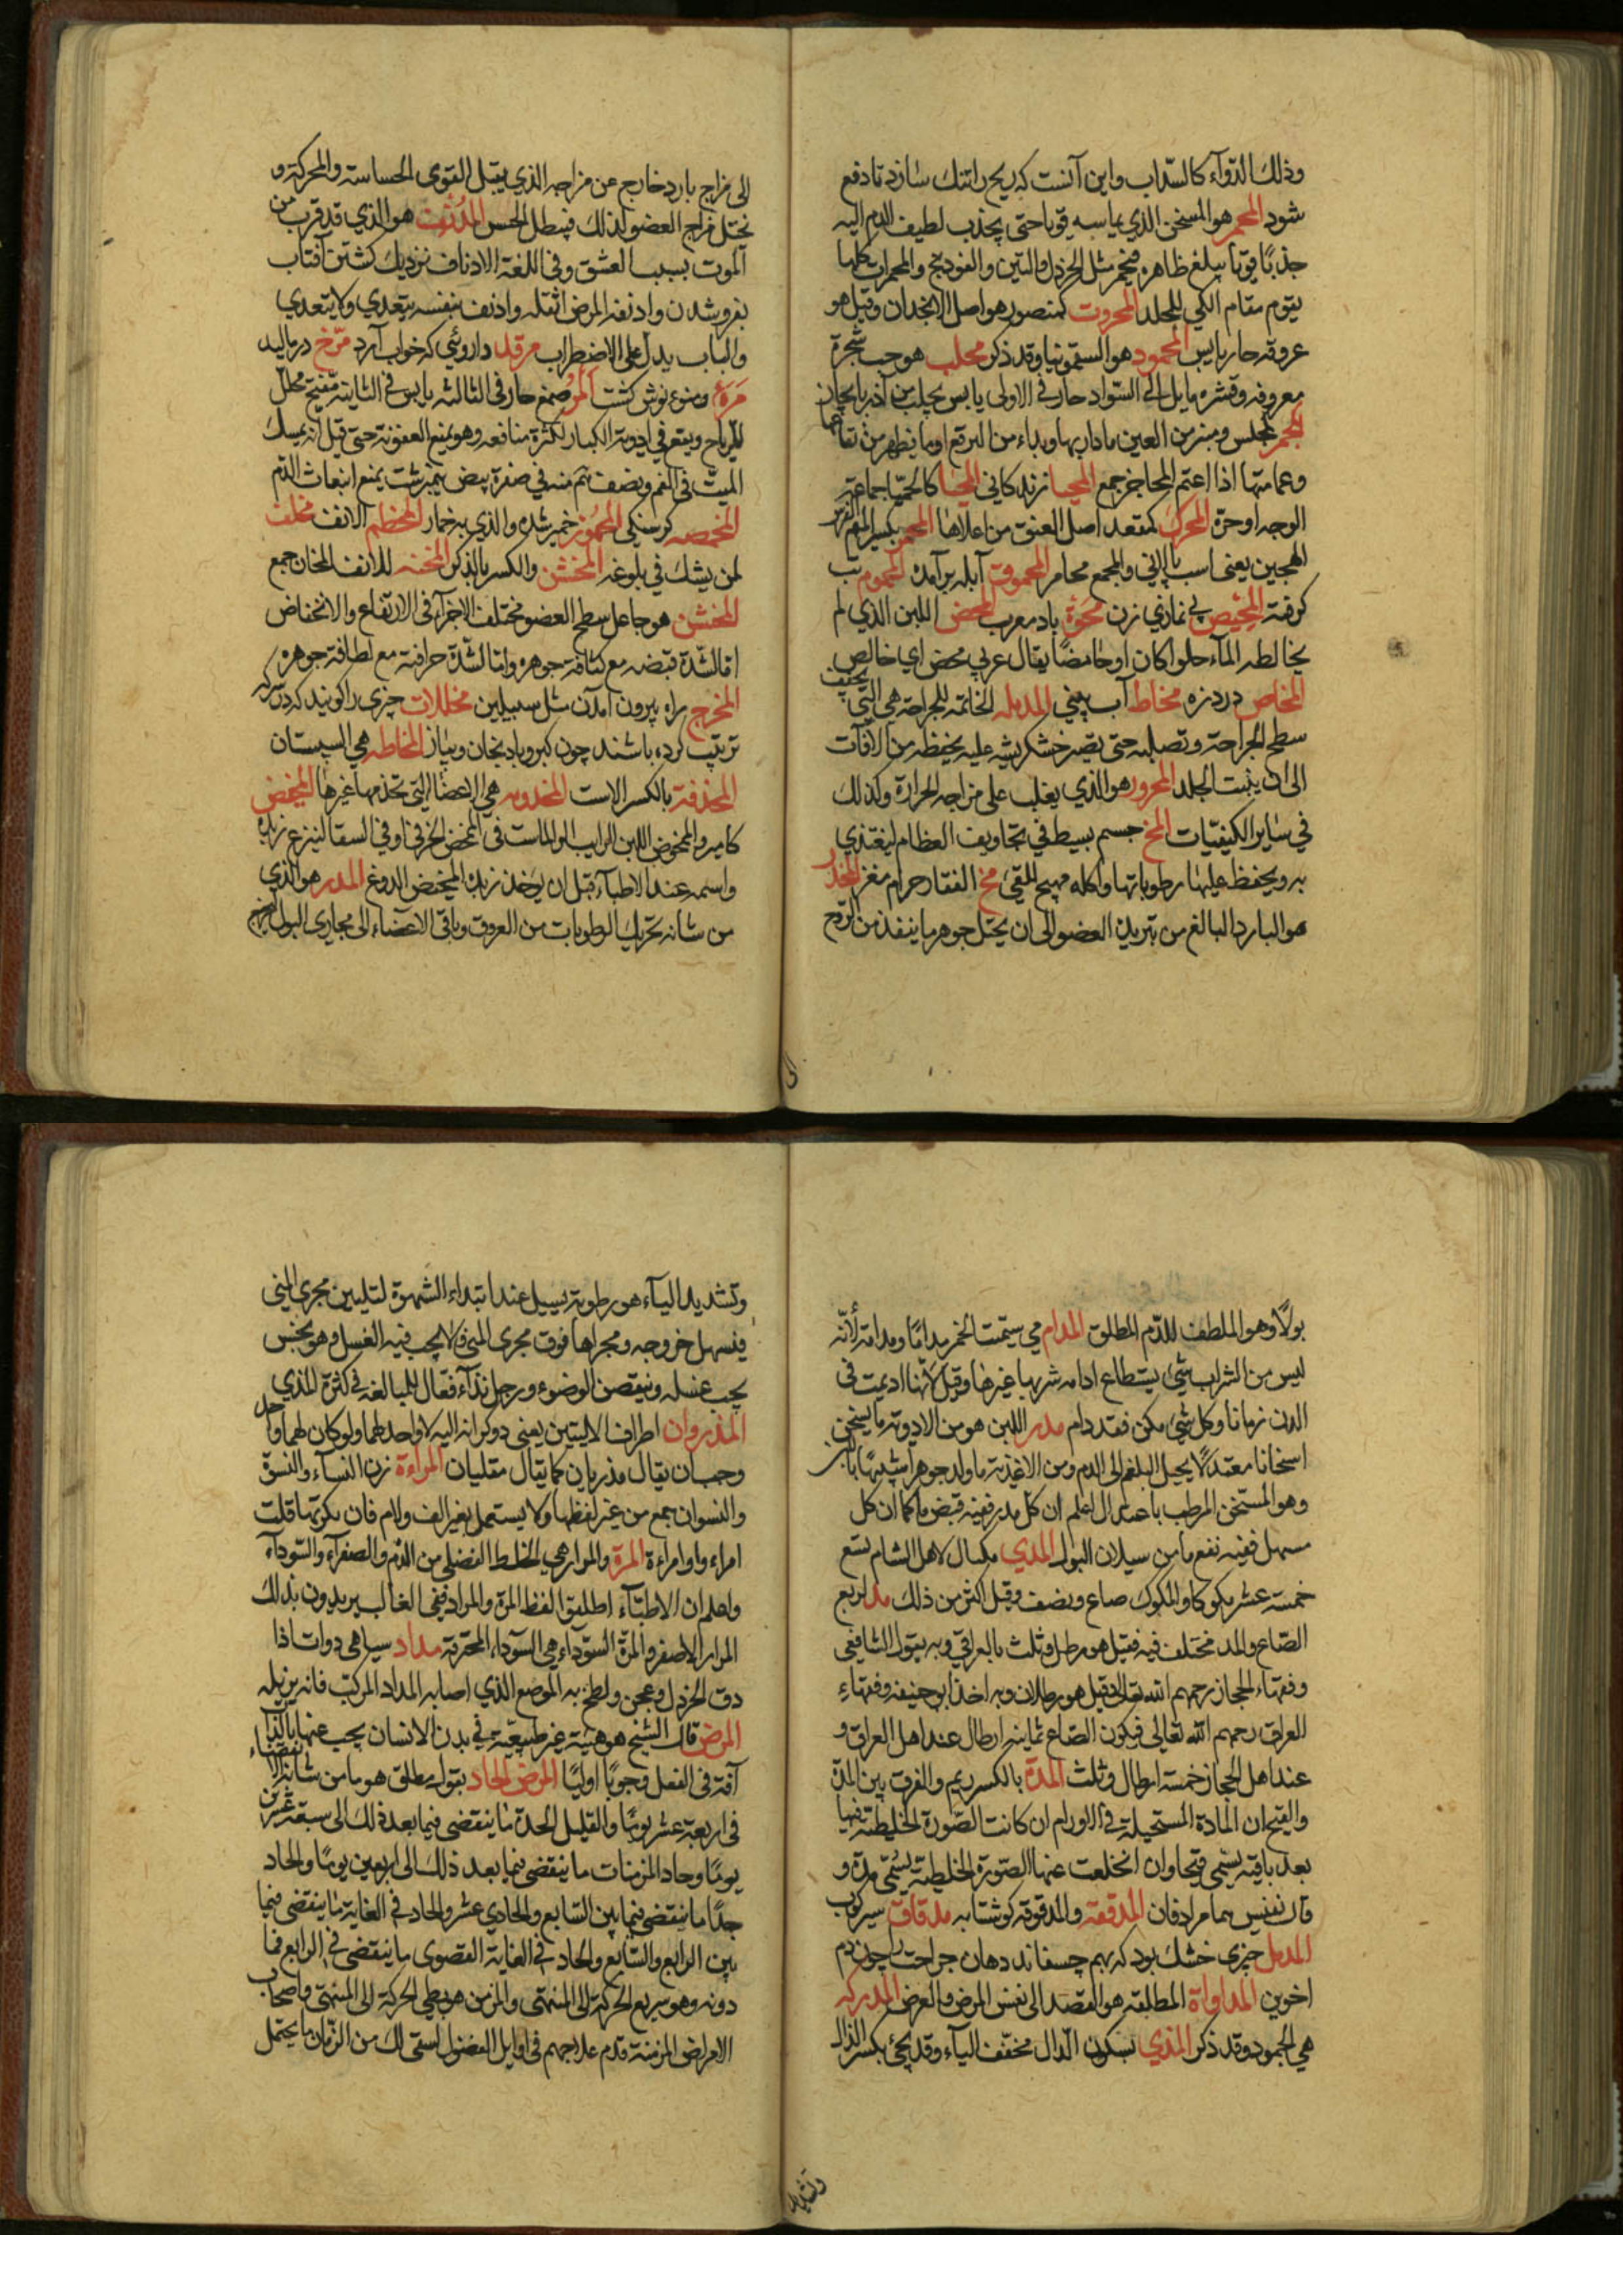 وذلك الدوآء كالسّداب واين آنست كه ريح را تنك سازد تا دفع
شود المحمر هو المسخن الذي يماسه قويا حتى يجذب لطيف الدم اليه
جذبًا قويا يبلغ ظاهره فيحمر مثل الخردل والتين والفودنج والمحمرات كلها
يقوم مقام الكي للجلد المحروت كمنصور هو اصل الانجدان وقيل هو
عروقه حار يابس المحمود هو السقمونيا وقد ذكر محلب هو حب شجرة
معروفه وقشره مايل الى السّواد حار في الاولى يابس يجلب من آذربايجان
المحجر كمجلس ومنبر من العين ما دار بها وبداء من البرقع او ما يظهر من نقابها
وعمامتها اذا اعتم المحاجر جمع المحيا زندكاني المحيا كالحميا جماعة
الوجه او حرّه المحرك كمقعد اصل العنق من اعلاها المحمر بكسر الميم الفرس
الهجين يعني اسب پالاني والجمع محامر المحموق آبله برآمده المحموم تب
كرفته المحيض بي نمازي زن محوة باد مغرب المحض اللبن الذي لم
يخالطه المآء حلوا كان او حامضًا يقال عربي محض اي خالص
المخاض درد زه مخاط آب بيني المدمله الخاتمه للجراحة هي التي تجفف
سطح الجراحة وتصلبه حتى يصير خشكريشه عليه يحفظه من الافات
الى ان ينبت الجلد المحرور هو الذي يغلب على مزاجه الحرارة وكذلك
في ساير الكيفيّات المخ جسم بسيط في تجاويف العظام ليغتذي
به ويحفظ عليها رطوباتها واكله مهيج للقيء مخ الفقار حرام مغز المخدر
هو البارد البالغ من تبريد العضو الى ان يحيل جوهر ما ينفذ من الروح
الى مزاج بارد خارج عن مزاجه الذي يقبل القوى الحساسة والمحركة و
يحيل مزاج العضو لذلك فيبطل الحس المدنف هو الذي قد قرب من
الموت بسبب العشق وفي اللغة الادناف نزديك كشتن آفتاب
بفروشدن وادنفه المرض اثقله وادنف بنفسه يتعدي ولا يتعدي
والباب يدل على الاضطراب مرقد داروئي كه خواب آرد مرّخ درماليد
مرئ ومنوع نوش كشت المرّ صمغ حار في الثالثه يابس في الثانية مفتح محلل
للرياح ويقع في ادوية الكبار لكثرة منافعه وهو يمنع العفونة حتى قيل انه يمسك
الميت في الفم ونصف ثم منه في صفرة بيض نيمبرشت يمنع انبعاث الدم
المخمصه كرسنكي المخمور خمير شده والذي به خمار المخطم الانف مخلف
لمن يشك في بلوغه المخشن والكسر بالذكر المخنه للانف المخان جمع
المخشن هو جاعل سطح العضو مختلف الاجزآء في الارتفاع والانخفاض
اما لشدة قبضه مع كثافة جوهره واما لشدّة حرافته مع لطافة جوهره
المخرج راه بيرون آمدن مثل سبيلين مخللات چيزى را كويند كه در سركه
ترتيب كرده باشند چون كبر وبادنجان وپياز المخاطه هي السبستان
المخذفة بالكسر الاست المخدومه هي الاعضاء التي تخدمها غيرها المخيض
كامير والممخوض اللبن الرايب الماست في المخض الخرفي او في السقا لينزع زبده
واسمه عند الاطبآء قبل ان يوخذ زبده المخيض الدوغ المدر هو الذي
من شانه تحريك الرطوبات من العروق وباقي الاعضاء الى مجاري البول ليخرج
الى
بولًا وهو الملطف للدّم المطلق المدام مي سيمّت الخمر مدامًا ومدامة لأنّه
ليس من الشراب شيء يستطاع ادامه شربها غيرها وقيل لأنها اديمت في
الدن زمانا وكل شيء مكن فقد دام مدر اللبن هو من الادوية ما يسخن
اسخانا معتدلًا يحيل البلغم الى الدم ومن الاغذية ما ولد جوهرا شبيهًا باللبن
وهو المسخن المرطب باعتدال اعلم ان كل مدر ففيه قبض ما كما ان كل
مسهل ففيه نفع ما من سيلان البول المدي مكيال لاهل الشام يسع
خمسة عشر مكوكا والمكوك صاع ونصف وقيل اكثر من ذلك مد ربع
الصّاع والمد مختلف فيه فقيل هو رطل وثلث بالعراقي وبه يقول الشافعي
وفقهاء الحجاز رحمهم الله تعالى وقيل هو رطلان وبه اخذ ابو حنيفه وفقهاء
العراق رحمهم الله تعالى فيكون الصّاع ثمانيه ارطال عند اهل العراق و
عند اهل الحجاز خمسة ارطال وثلث المدّة بالكسر ريم والفرق بين المدّة
والقيح ان المادة المستحيلة في الاورام ان كانت الصّورة الخليطته فيها
بعد باقية يسمى قيحا وان انخلعت عنها الصّورة الخلطية يسمّى مدة و
قال نفيس هما مرادفان المدقعة والمدقوقه كوشتابه مدقاق سير كوب
المدمل چيزى خشك بود كه بهم چسفاند دهان جراحت را چون دم
اخوين المداواة المطلقه هو القصد الى نفس المرض والعرض المدركه
هي الجمود وقد ذكر المذي بسكون الذال مخفف الياء وقد يجئ بكسر الذال
وتشديد الياء هو رطوبة يسيل عند ابتداء الشهوة لتليين مجرى المني
فيسهل خروجه ومجراها فوق مجرى المني ولا يجب فيه الغسل وهو نجس
يجب غسله وينقض الوضوء ورجل مذّآء فعّال للمبالغه في كثرة المذي
المذروان اطراف الاليتين يعني دو كرانه اليه لا واحد لهما ولو كان لهما واحد
وجب ان يقال مذريان كما يقال مقليان المرأة زن النساء والنسوة
والنسوان جمع من غير لفظها ولا يستعمل بغير الف ولام فان نكرتها قلت
امراء وامراءة المرة والمرار هي الخلط الفضلي من الدّم والصفرآء والسّودآء
واعلم ان الاطبّآء اطلقوا لفظ المرة والمراد ففي الغالب يريدون بذلك
المرار الاصفر والمرّة السّوداء هي السّوداء المحترقة مداد سياهى دوات اذا
دق الخردل وعجن ولطخ به الموضع الذي اصابه المداد المركب فانه يزيله
المرض قال الشيخ هو هيئة غير طبيعيّة في بدن الانسان يجب عنها بالذات
آفة في الفعل وجوبًا اوليًا المرض الحاد بقول مطلق هو ما من شانه الانقضاء
في اربعة عشر يومًا والقليل الحدة ما ينقضي فيما بعد ذلك الى سبعة عشرين
يومًا وحاد المزمنات ما ينقضي فيما بعد ذلك الى اربعين يومًا والحاد
جدًا ما ينقضي فيما بين السّابع والحادي عشر والحاد في الغاية ما ينقضي فيما
بين الرابع والسّابع والحاد في الغاية القصوى ما ينقضي في الرابع فما
دونه وهو سريع الحركة الى المنتهى والمزمن هو بطي الحركة الى المنتهى واصحاب
الامراض المزمنة قدم علاجهم في اوايل الفصول لسقى لك من الزّمان ما يحتمل
وتشديد